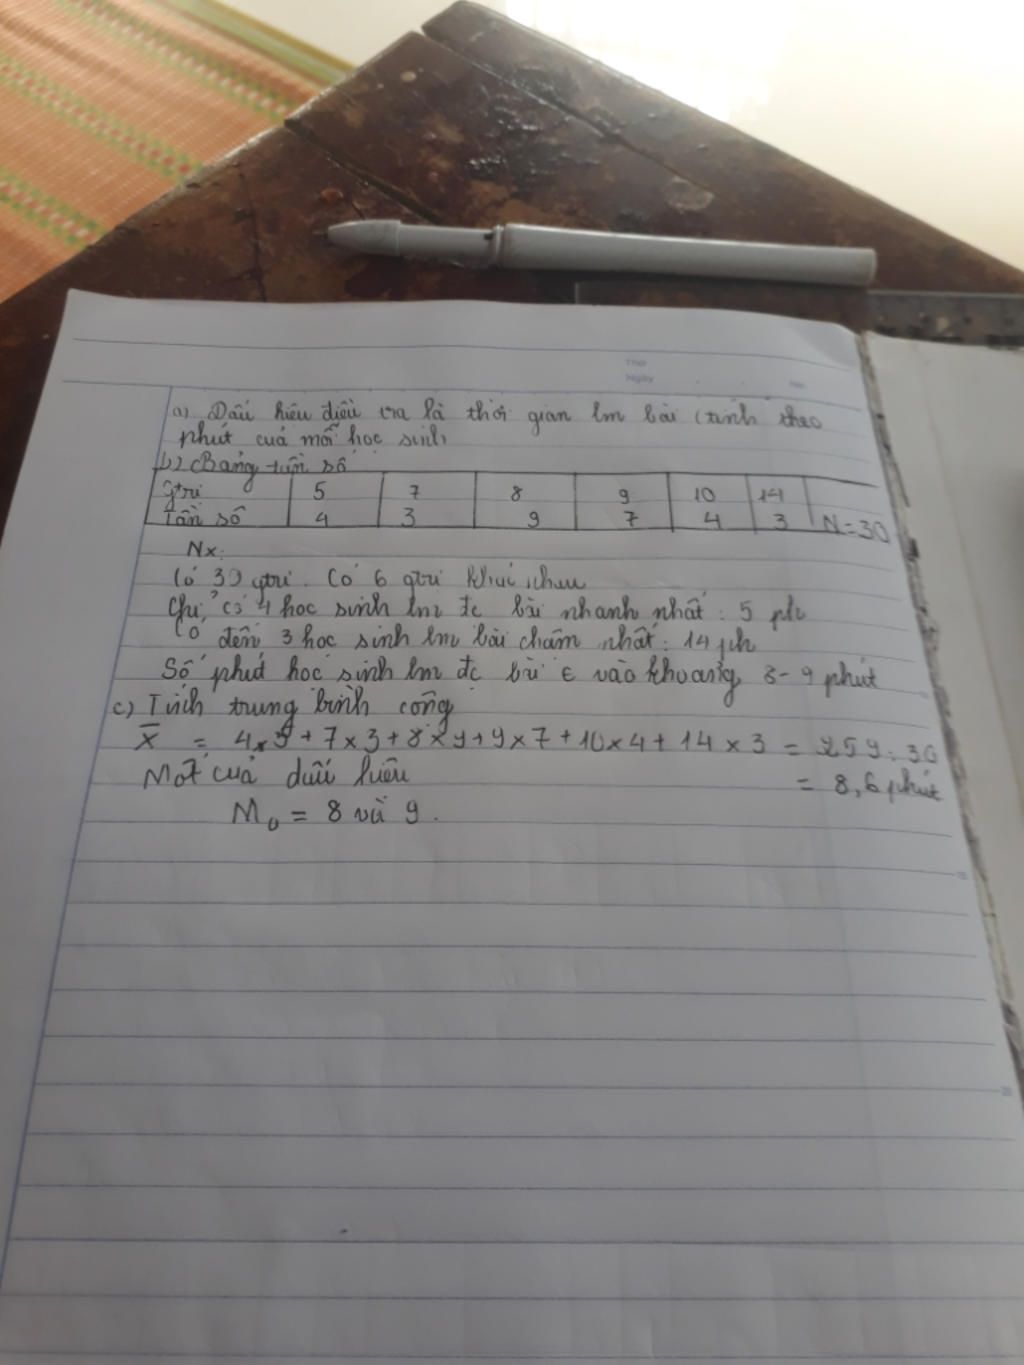 Thứ
Ngày . . No.
a) Dấu hiệu điều tra là thời gian lm bài (tính theo
phút của mỗi học sinh)
b) Bảng tần số
gtrị 5 7 8 9 10 14
Tần số 4 3 9 7 4 3 N=30
Nx:
Có 30 gtrị. Có 6 gtrị khác nhau
Chỉ có 4 học sinh lm đc bài nhanh nhất: 5 ph
Có đến 3 học sinh lm bài chậm nhất: 14 ph
Số phút học sinh lm đc bài ∈ vào khoảng 8-9 phút
c) Tính trung bình cộng
X̄ = 4×5+7×3+8×9+9×7+10×4+14×3 = 259:30
= 8,6 phút
Mốt của dấu hiệu
M₀ = 8 và 9.